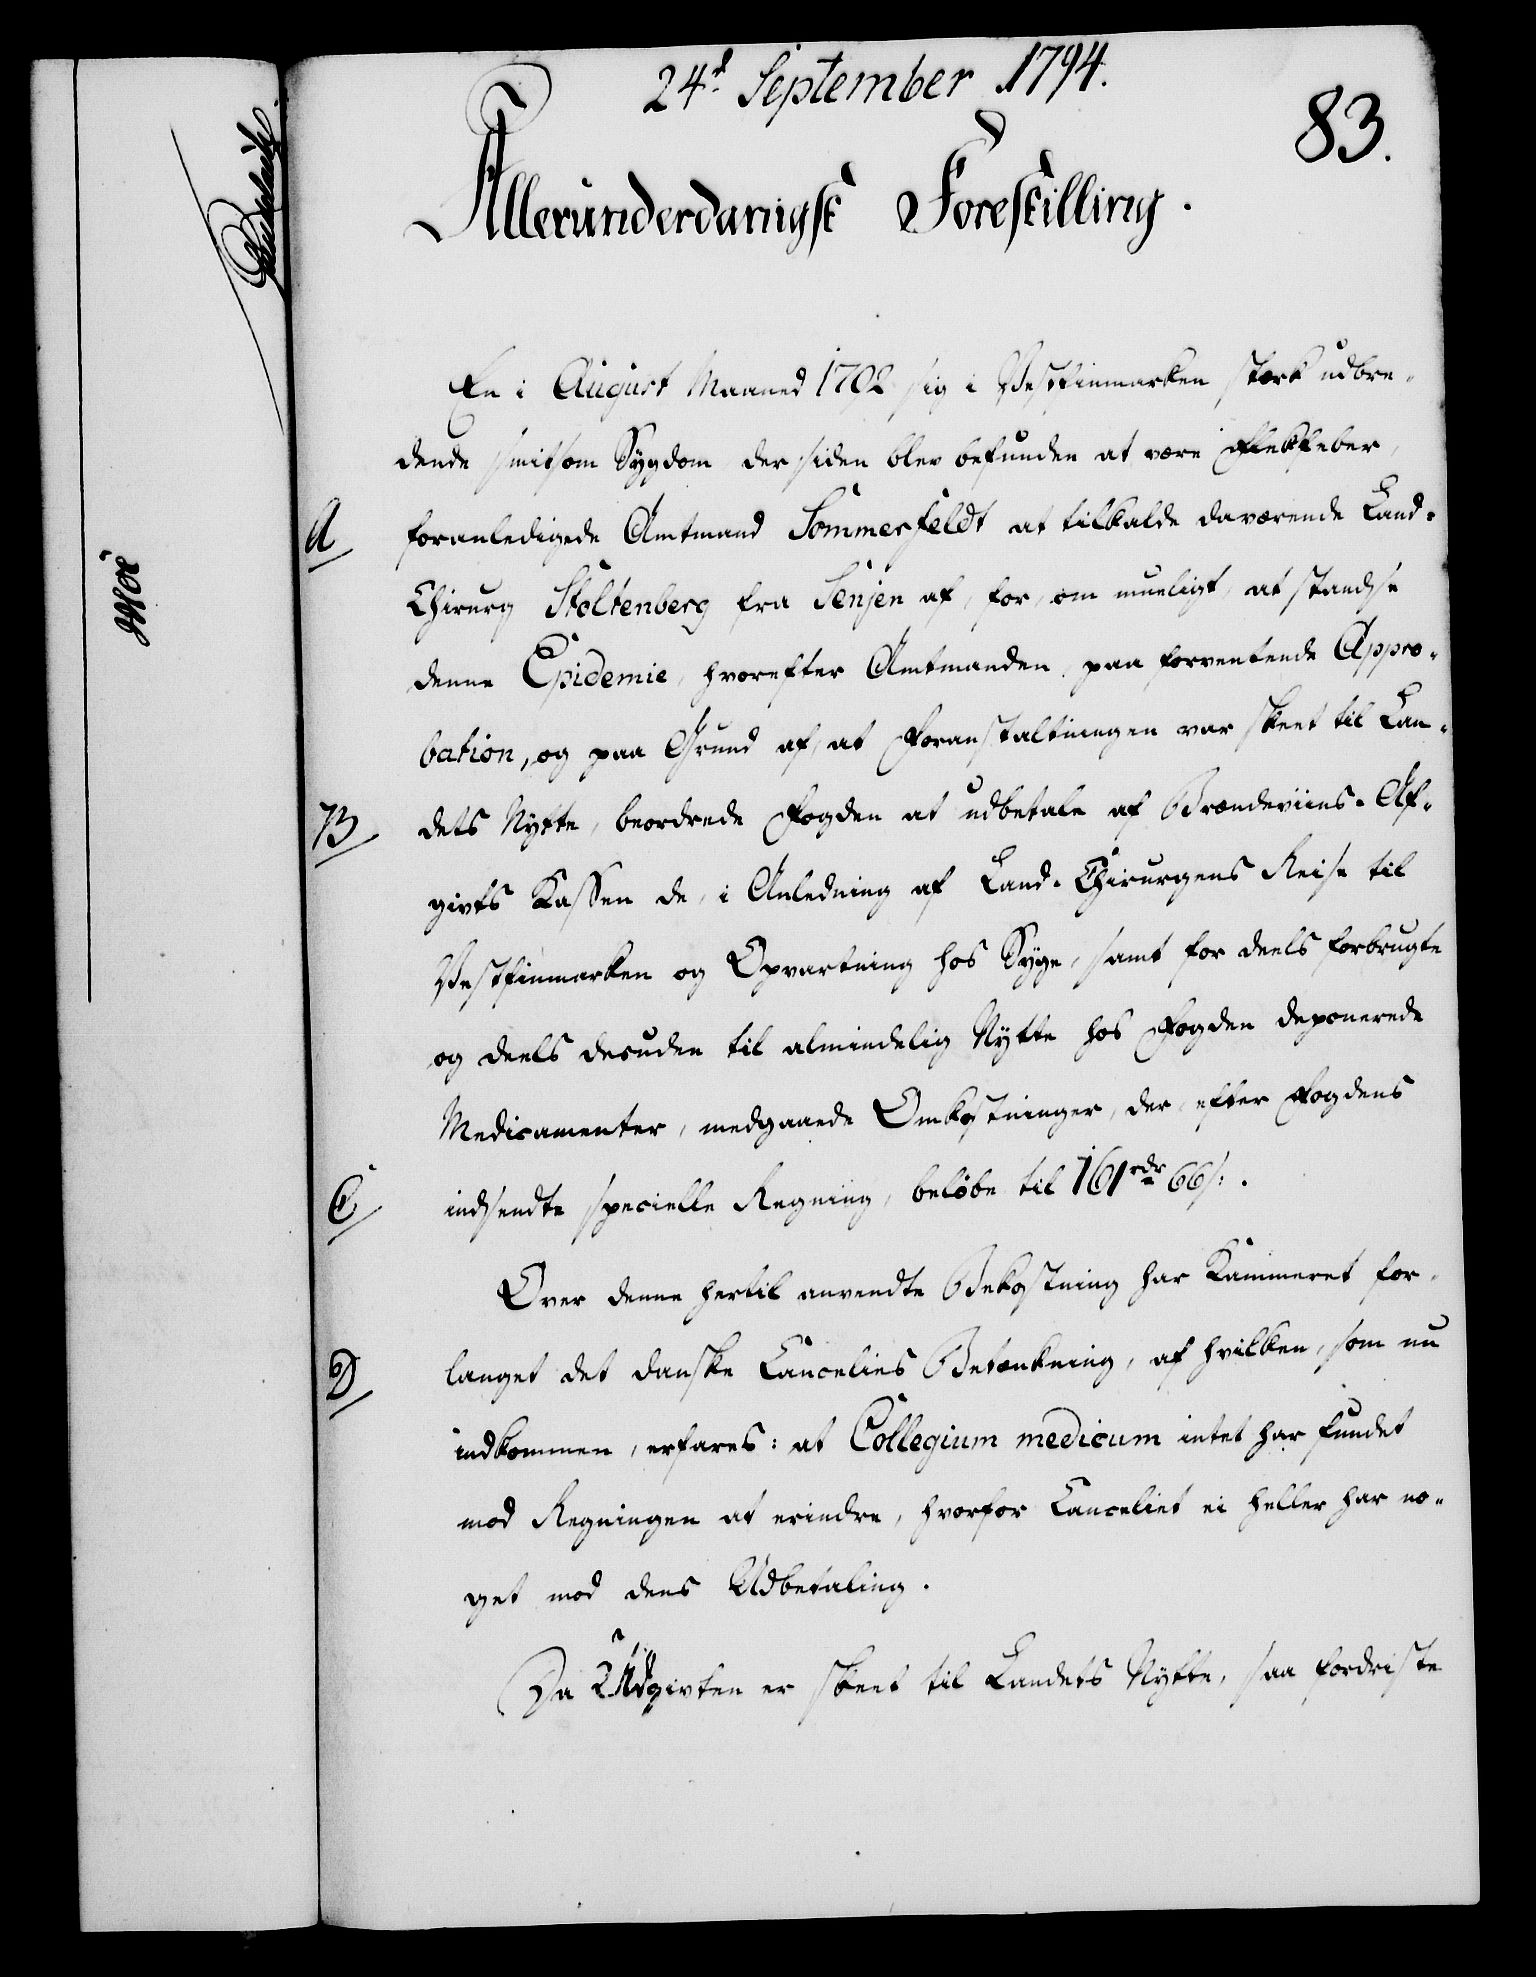 24d. September 1794.
83.
Allerunderdanigst Forestilling.
En i August Maaned 1792 sig i Vestfinmarken stærk udbre-
dende smitsom Sygdom der siden blev befunden at være Flekfeber,
A
foranledigede Amtmand Sommerfeldt at tilkalde daværende Land-
Chirurg Stoltenberg fra Senjen af, for, om mueligt, at standse
denne Epidemie, hvorefter Amtmanden, paa forventende Appro-
bation, og paa Grund af, at Foranstaltningen var skeet til Lan-
B
dets Nytte, beordrede Fogden at udbetale af Brændeviins-Af-
givts Kassen de, i Anledning af Land-Chirurgens Reise til
Vestfinmarken og Opvartning hos Syge, samt for deels forbrugte
og deels desuden til almindelig Nytte hos Fogden deponerede
Medicamenter, medgaaede Omkostninger, der, efter Fogdens
C
indsendte specielle Regning, beløbe til 161 rdr 66 s:.
Over denne hertil anvendte Bekostning har Kammeret for-
D
langet det danske Cancelies Betænkning, af hvilken, som nu
indkommen, erfares: at Collegium medicum intet har fundet
mod Regningen at erindre, hvorfor Canceliet ei heller har no-
get mod dens Udbetaling.
Da Udgivten er skeet til Landets Nytte, saa fordriste